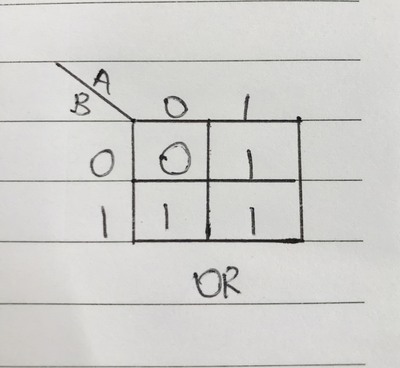 A
B 0 1
0 0 1
1 1 1
OR